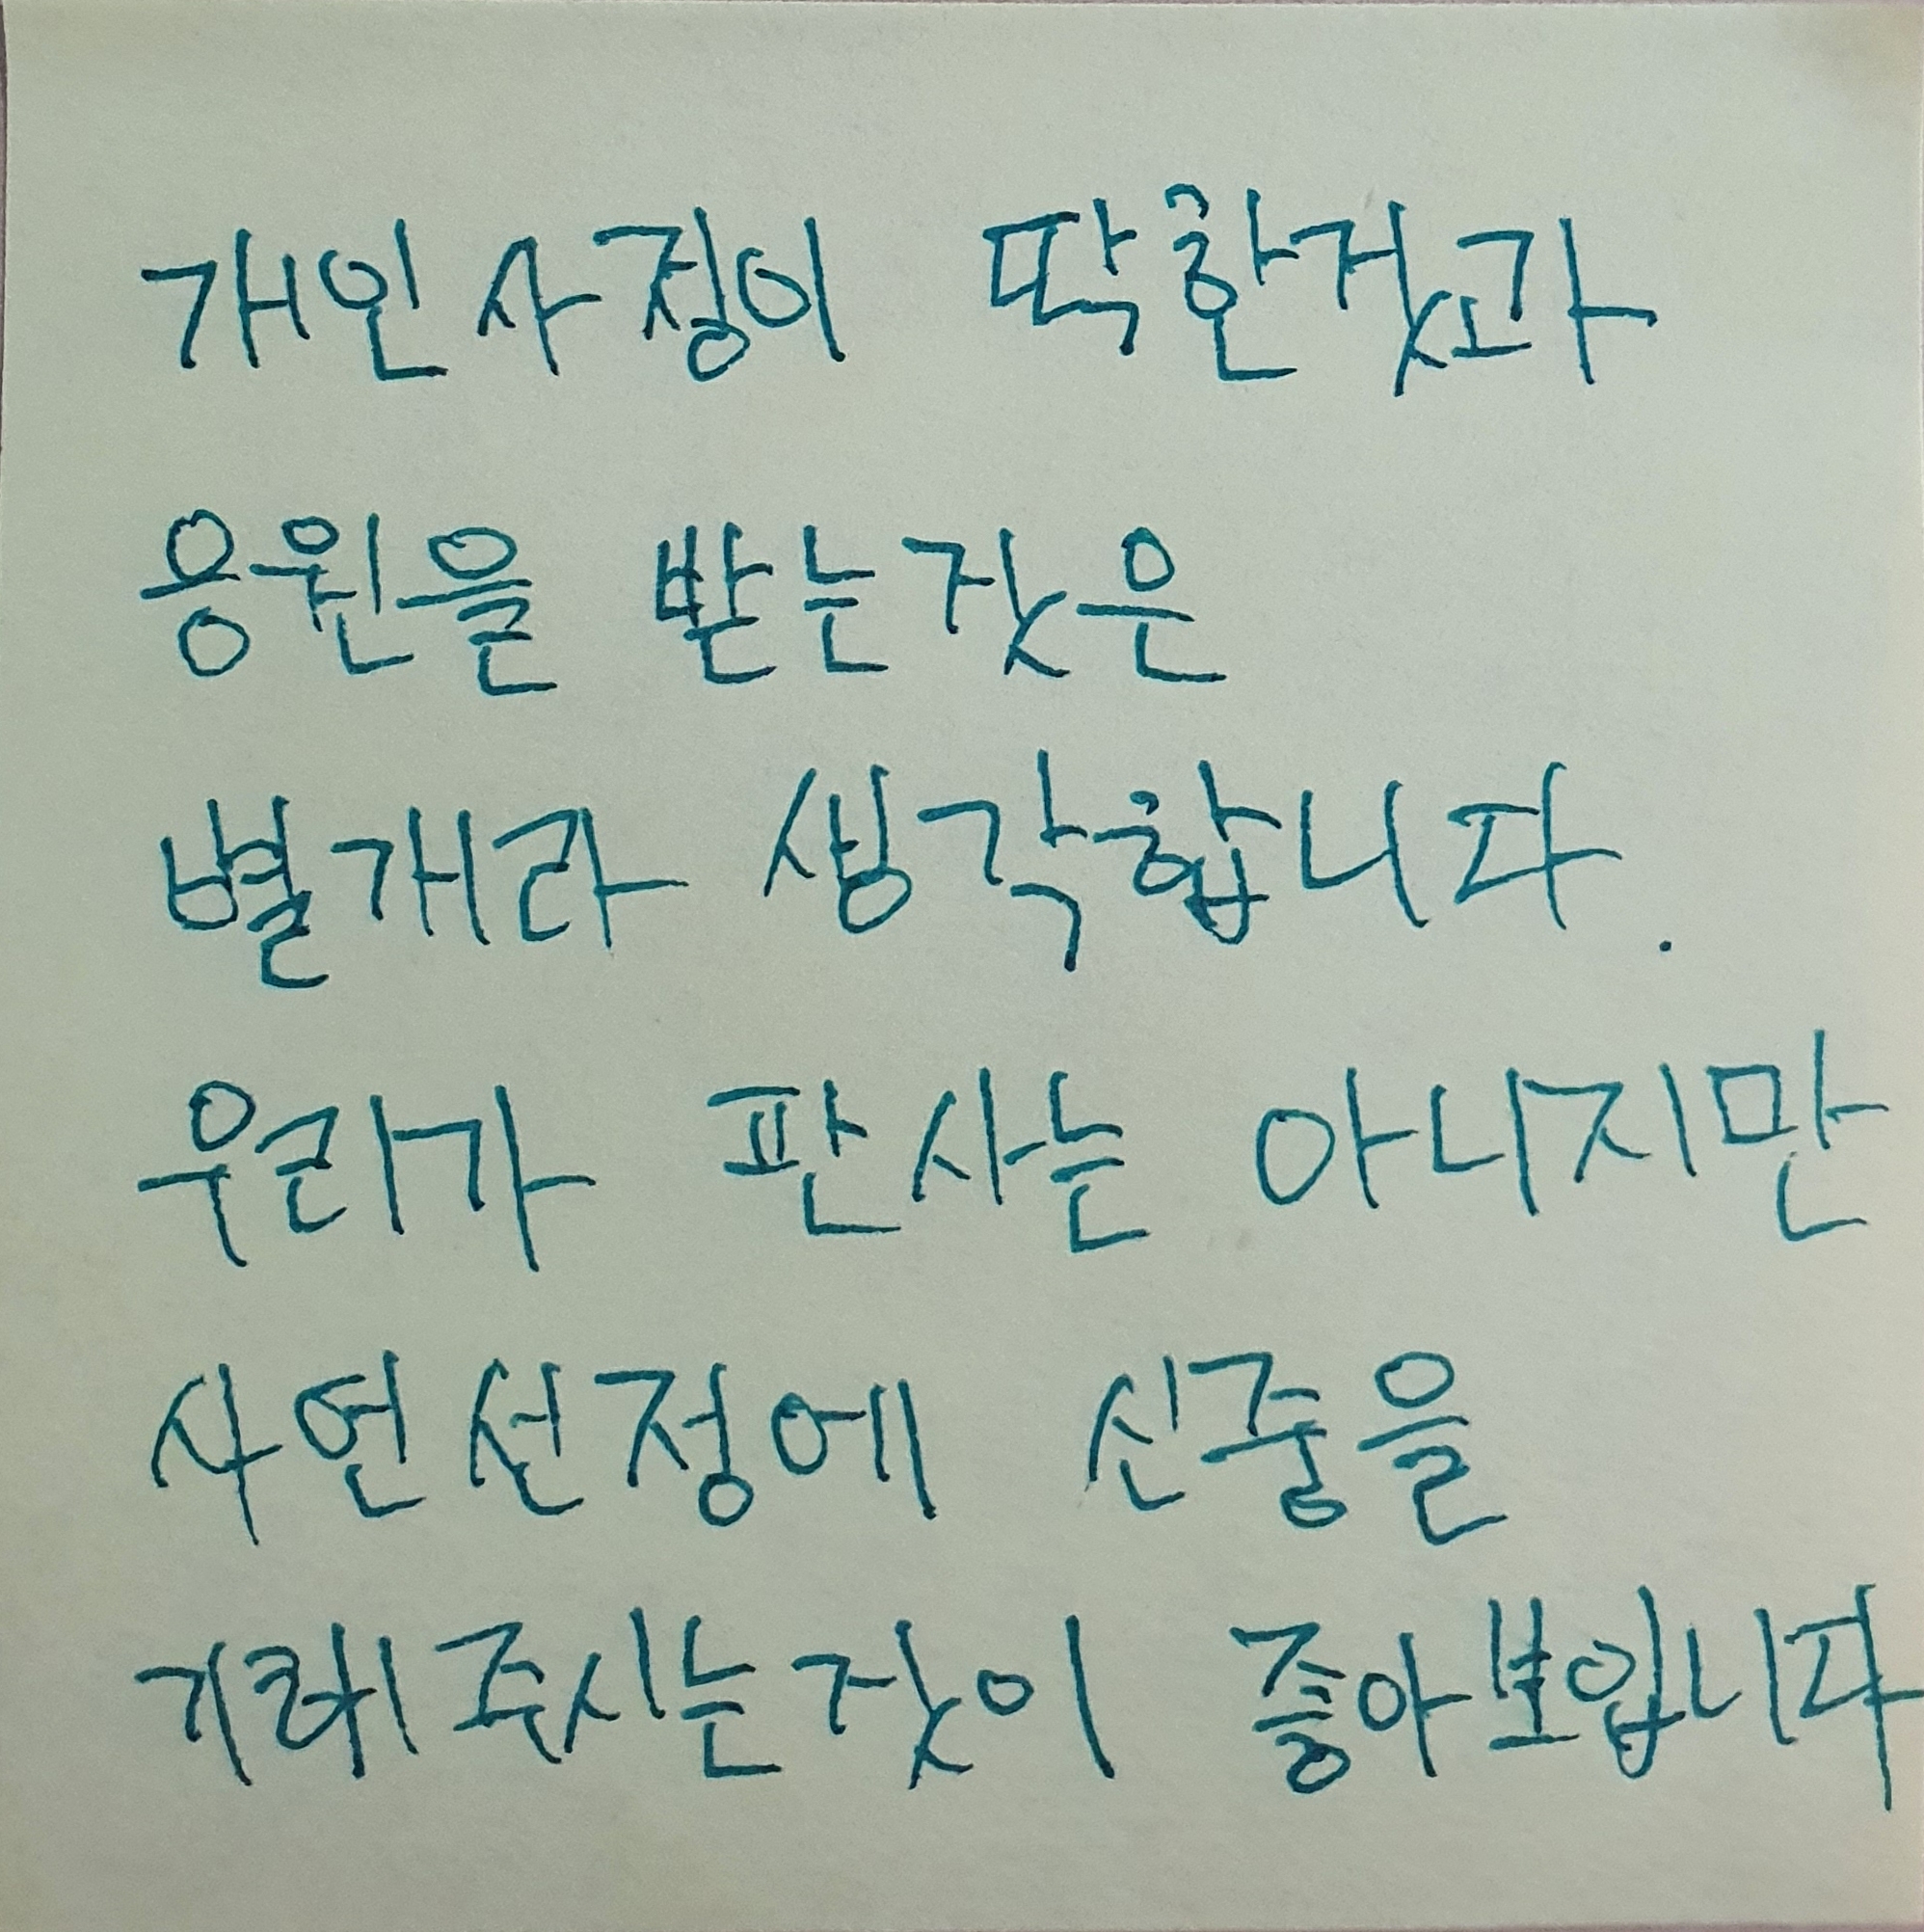 개인사정이 딱한것과
응원을 받는것은
별개라 생각합니다.
우리가 판사는 아니지만
사연선정에 신중을
기해주시는것이 좋아보입니다